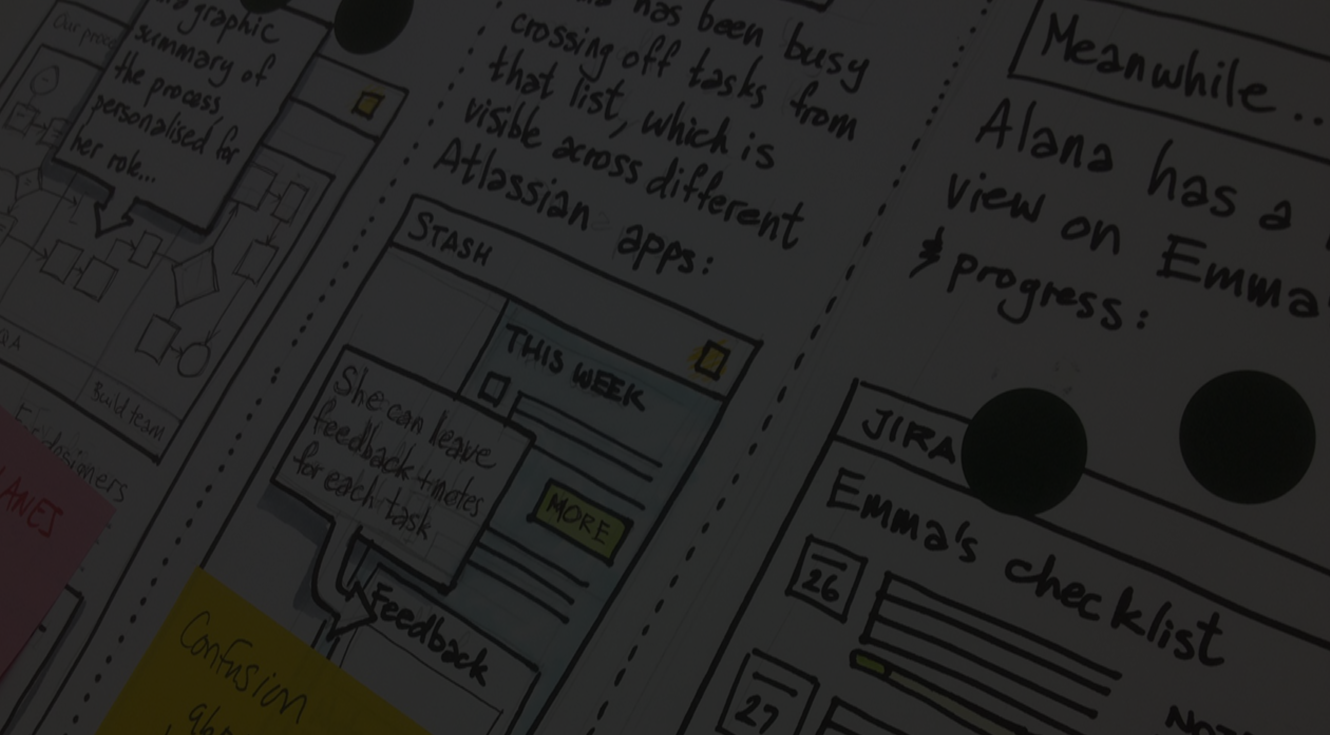 Our proce
graphic
summary of
the process,
personalised for
her role...
QA
Build team
ANES
has been busy
crossing off tasks from
that list, which is
visible across different
Atlassian apps:
STASH
THIS WEEK
She can leave
feedback + notes
for each task
MORE
Feedback
Confusion
Meanwhile...
Alana has a
view on Emma's
& progress:
JIRA
Emma's checklist
26
27